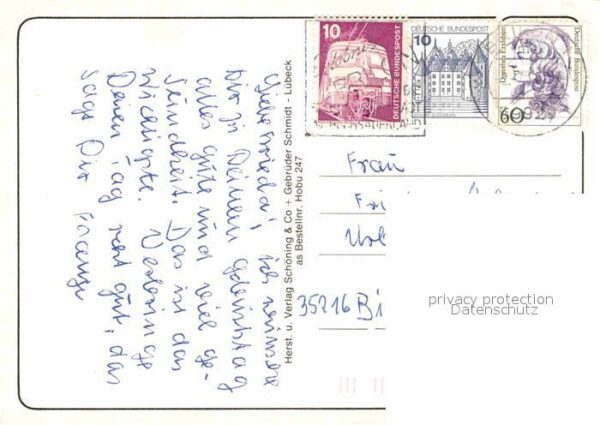 Liebe Frieda! ich wünsche
Dir zu Deinem Geburtstag
alles gute und viel ge-
sundheit. Das ist das
wichtigste. Verbringe
Deinen Tag recht gut, das
sagt Dir
Herst. u. Verlag Schöning & Co + Gebrüder Schmidt - Lübeck
as Bestellnr. Hobu 247
10
DEUTSCHE BUNDESPOST
10
DEUTSCHE BUNDESPOST
Dorothea Erxleben
Deutsche Bundespost
60
Frau
35216 Bi
privacy protection
Datenschutz